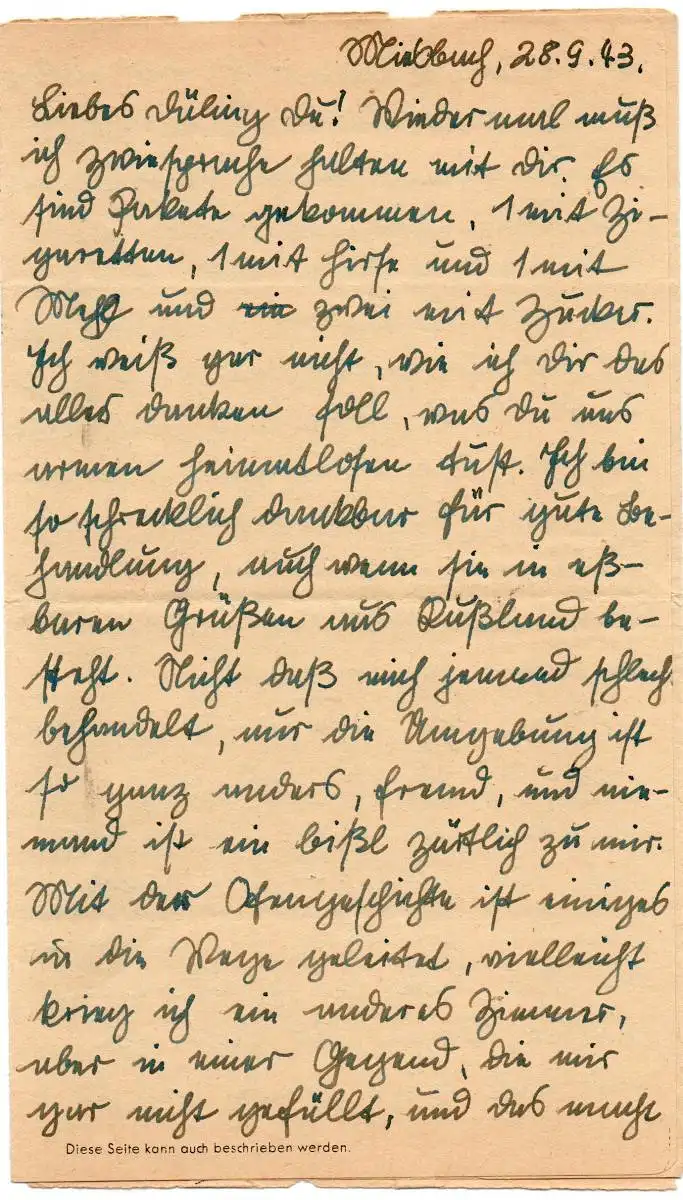 Miesbach, 28.9.43.
Liebes Düling du! Wieder mal muß
ich Zwiesprache halten mit dir. Es
sind Pakete gekommen, 1 mit Zi-
garetten, 1 mit Hirse und 1 mit
Mehl und ein zwei mit Zucker.
Ich weiß gar nicht, wie ich dir das
alles danken soll, was du uns
armen heimatlosen tust. Ich bin
so schrecklich dankbar für gute Be-
handlung, auch wenn sie in eß-
baren Grüßen aus Rußland be-
steht. Nicht daß mich jemand schlech
behandelt, nur die Umgebung ist
so ganz anders, fremd, und nie-
mand ist ein bißl zärtlich zu mir.
Mit der Ofengeschichte ist einiges
in die Wege geleitet, vielleicht
krieg ich ein anderes Zimmer,
aber in einer Gegend, die mir
gar nicht gefällt, und das macht
Diese Seite kann auch beschrieben werden.